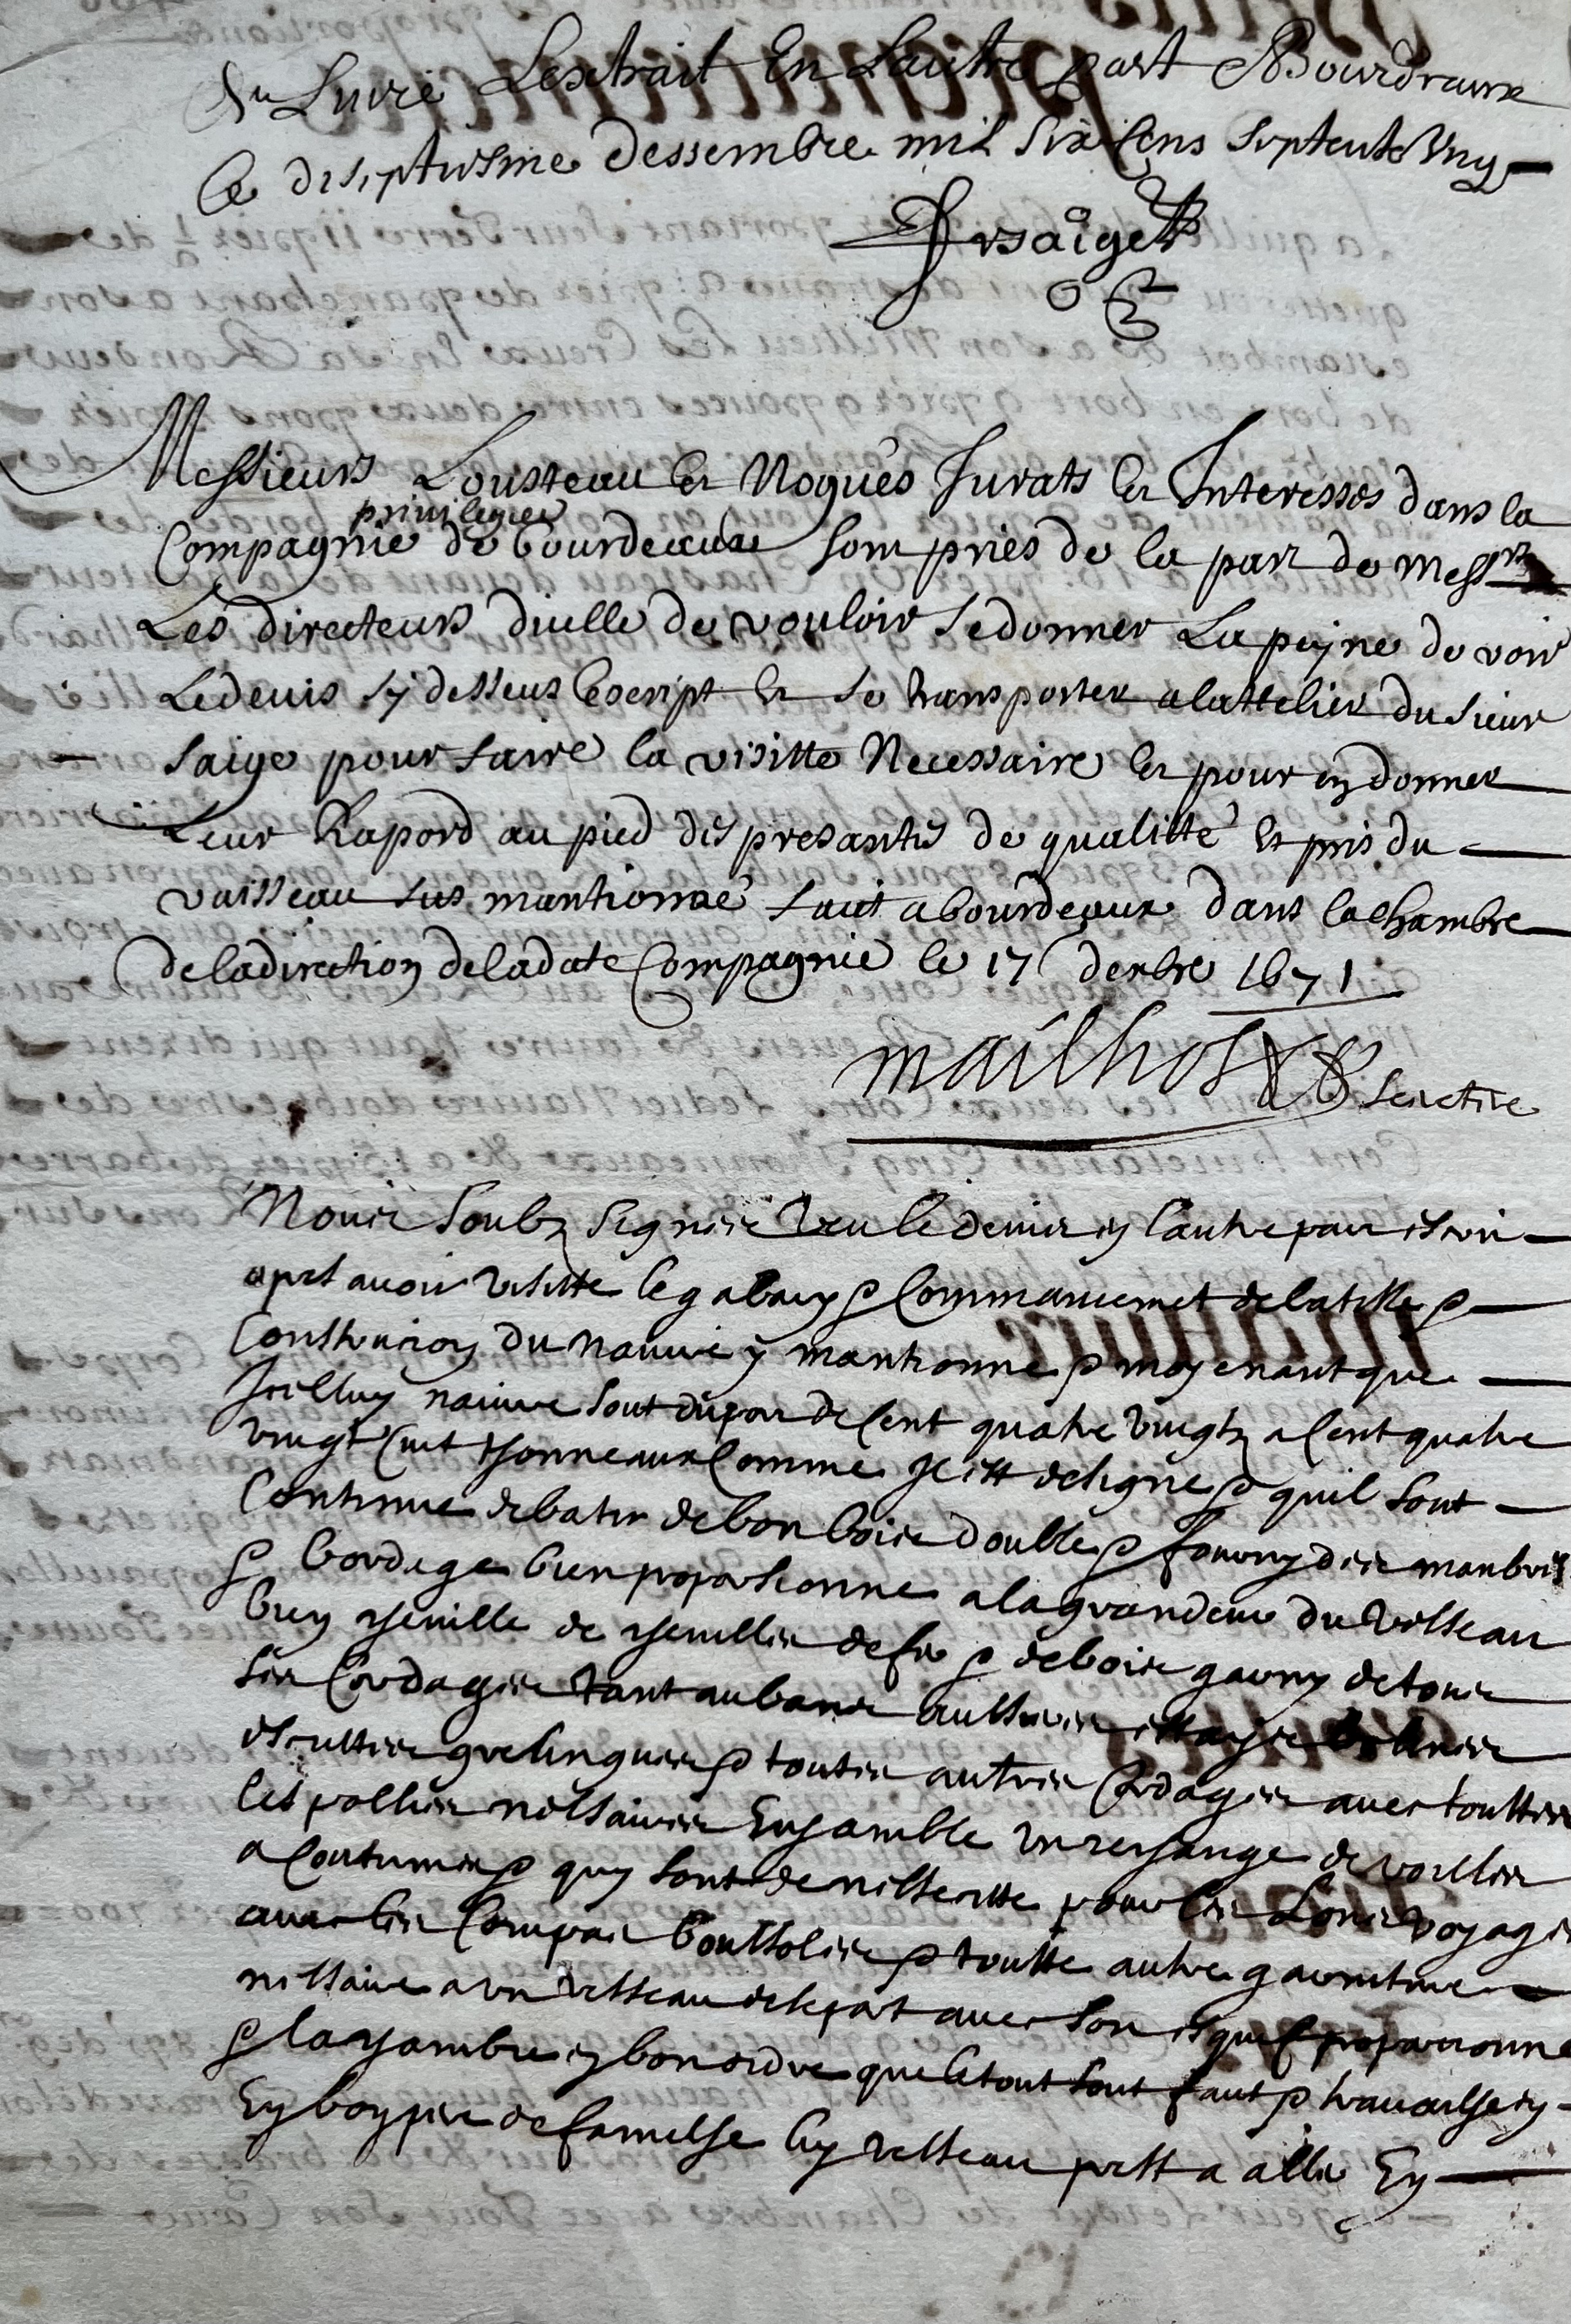 du Livre Lextrait En Lautre part A Bourdeaux
Ce diseptiesme dessembre mil six Cens Septente Ung
Saige
Messieurs Lousteau Et Noguès Jurats Et Interessés dans la
privilegiee
Compagnie de bourdeaux som priés de la part de Messrs
Les directeurs dicelle de vouloir se donner La peyne de voir
Le devis sy dessus Escript Et se transporter a lattelier du sieur
Saige pour faire la visitte Necessaire Et pour en donner
Leur Rapord au pied des presantes de qualitté Et pris du
vaisseau sus mantionné fait a bourdeaux dans la chambre
de la direction de ladate Compagnie le 17 decbre 1671
mailhos Secretre
Nous soubz signes Veu le devis en lautre part escri
apres avoir visitte le gabary & Commancemet de latille &
Constrution du navire y mantionne & moyenant que
Icelluy navire soit du por de Cent quatre vingtz a Cent quatre
vingt Cint thonneaux Comme il est designe & quil soit
Continue de batir de bon bois doulle & fourny des manbres
& bordage bien proportionne a la grandeur du vesseau
bien cheville de chevilles de fer & de bois garny de tous
ses Cordages tant aubans
escuttes grelingues & toutes autres Cordages avec touttes
les pollies nessaires Ensamble un rechange de voilles
a Coutumes & quy sont de nessesitte pour les Lons voyages
avec les Compas boussoles & toutte autre garniture
nessaire a un vesseau de sepor avec son esquif proporsionne
& la chambre en bon ordre que le tout soit faut & travailhe en
En bon per de familhe En vesseau prest a aller En